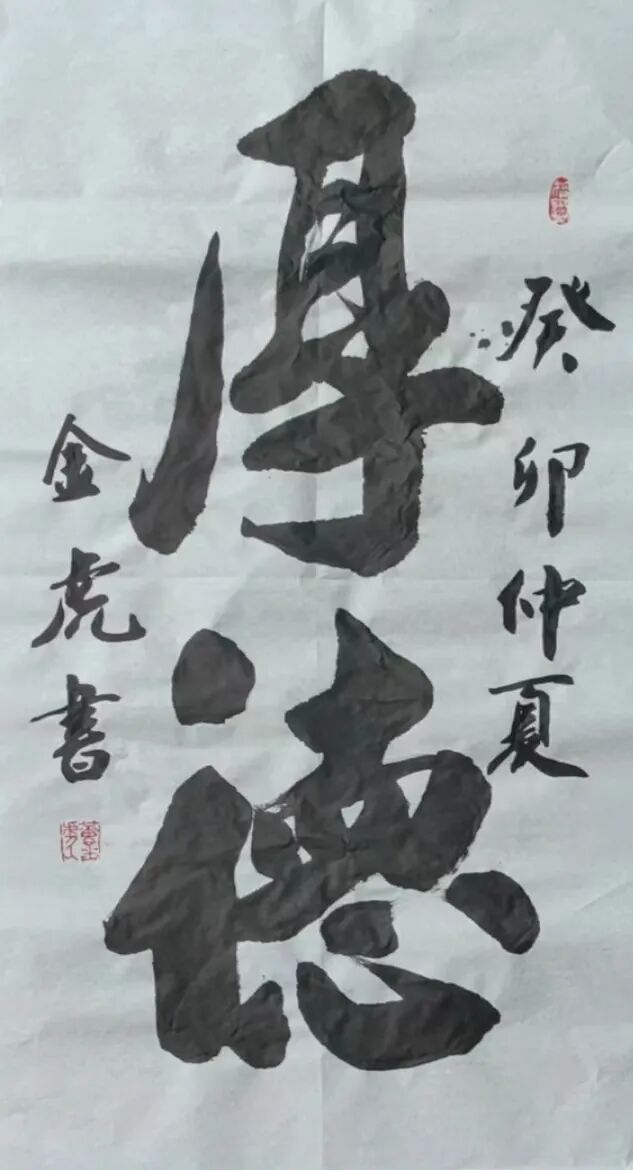 癸卯仲夏
厚德
金虎書